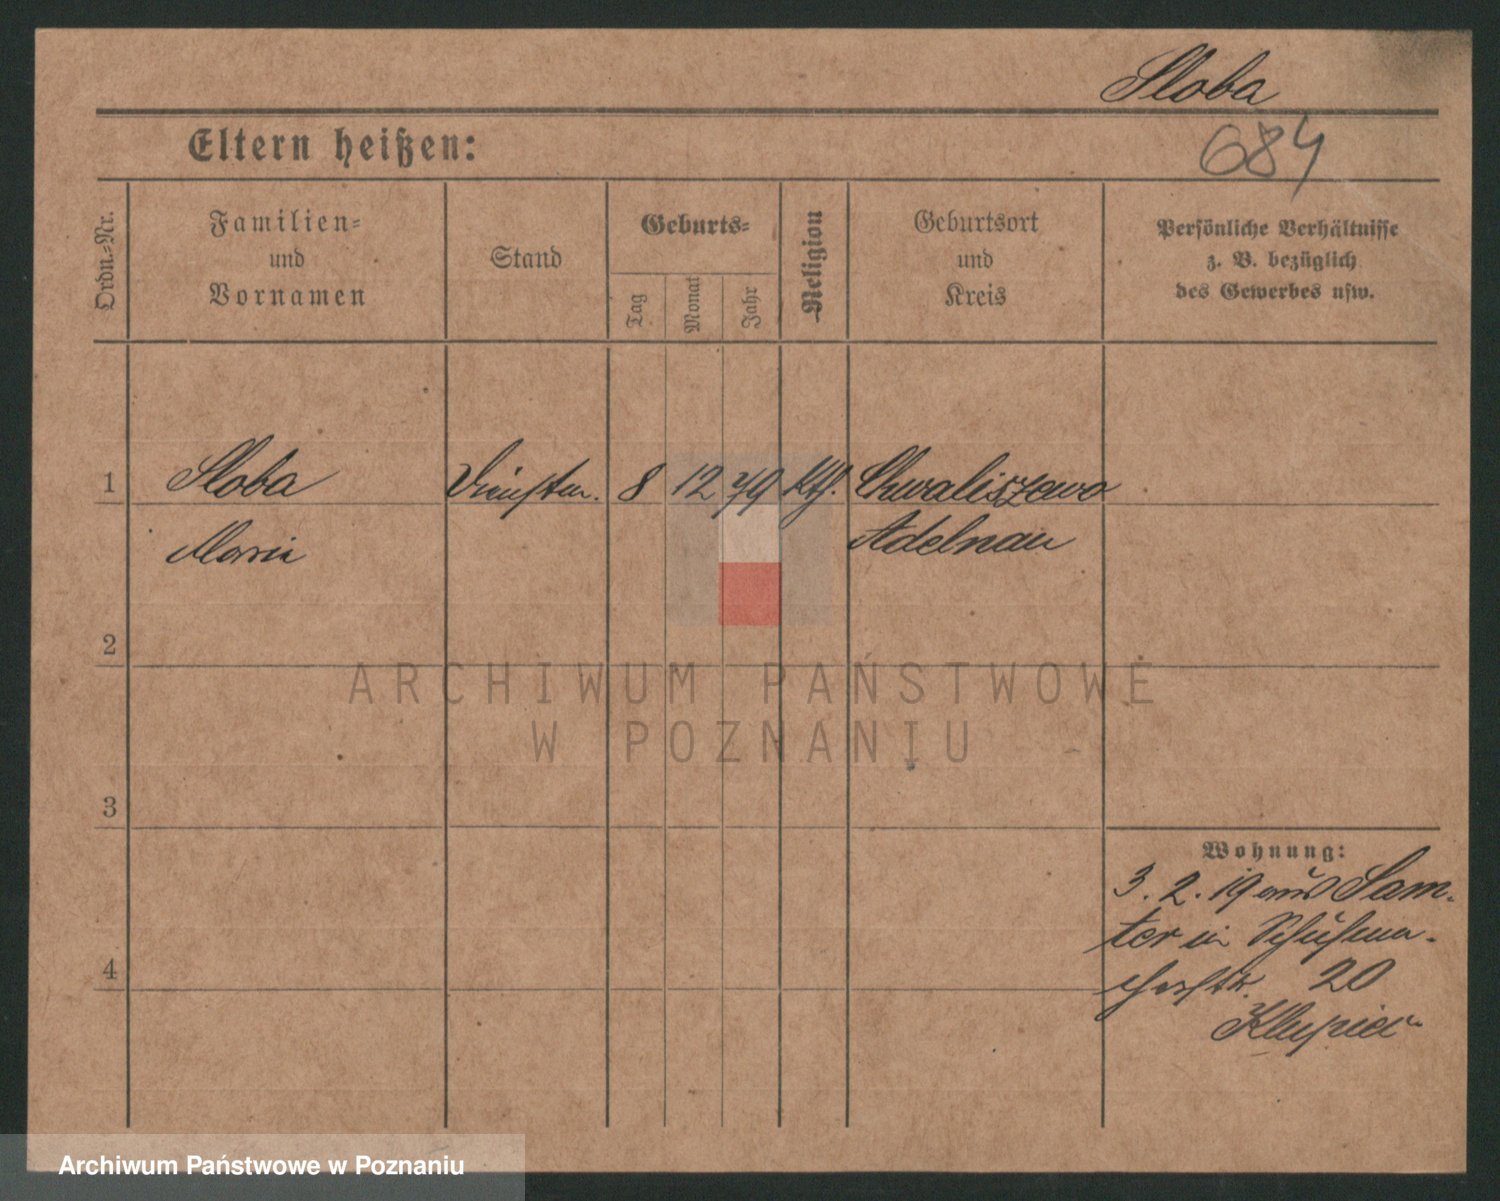 Sloba
684
Eltern heißen:
Ordn.-Nr.
Familien-
und
Vornamen
Stand
Geburts-
Tag
Monat
Jahr
Religion
Geburtsort
und
Kreis
Persönliche Verhältnisse
z. B. bezüglich
des Gewerbes usw.
1 Sloba 8 12 79 Kth. Chwaliszewo
Marie Adelnau
2
3
4
Wohnung:
3. 2. 19 aus Sam-
ter in Schuhma-
cherstr. 20
ARCHIWUM PAŃSTWOWE
W POZNANIU
Archiwum Państwowe w Poznaniu